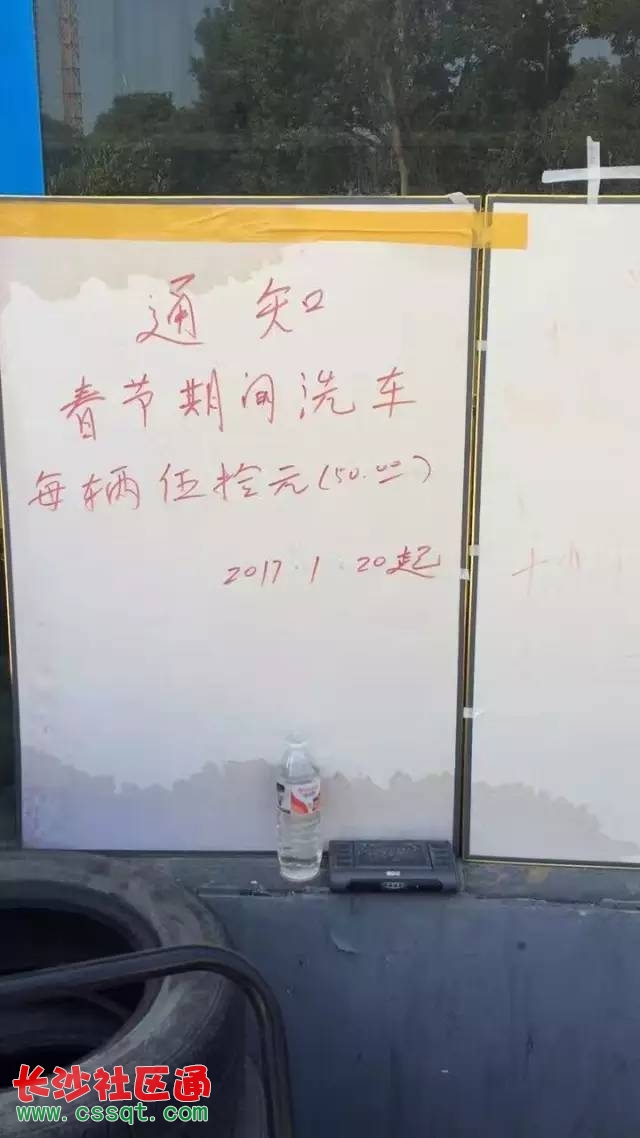 通知
春节期间洗车
每辆伍拾元(50.00)
2017.1.20起
长沙社区通
www.cssqt.com